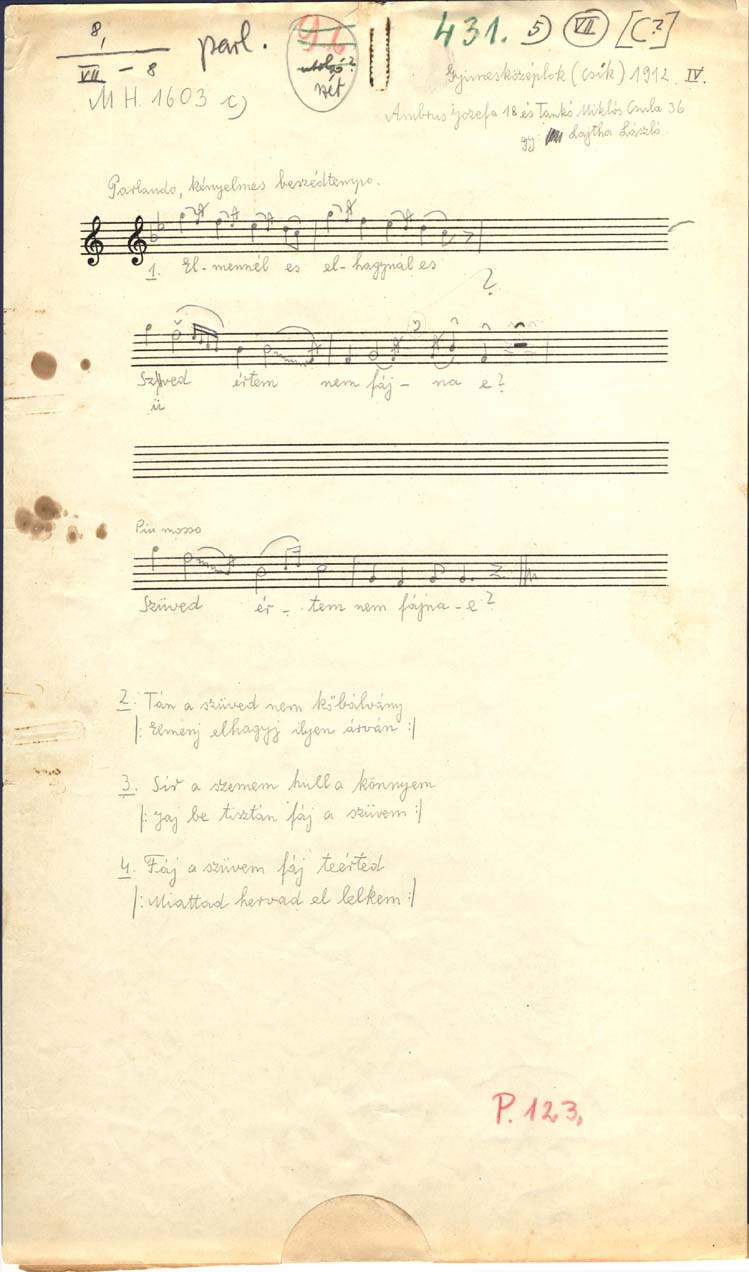 8,
VII - 8
parl.
96
utolsó?
két
431. 5) VII [C?]
MH 1603 c)
Gyimesközéplok (Csík) 1912. IV.
Ambrus Jozefa 18 és Tankó Miklós Csula 36
gy: Lajtha László
Parlando, kényelmes beszédtempo.
1. El-mennél es el-hagynál es
?
Szived értem nem fáj-na e?
ü
Piu mosso
Szüved ér-tem nem fájna-e?
2. Tán a szüved nem kőbálvány
|: Elmenj elhagyj ilyen árván :|
3. Sir a szemem hull a könnyem
|: Jaj be tisztán fáj a szüvem :|
4. Fáj a szüvem fáj teérted
|: Miattad hervad el lelkem :|
P. 123,